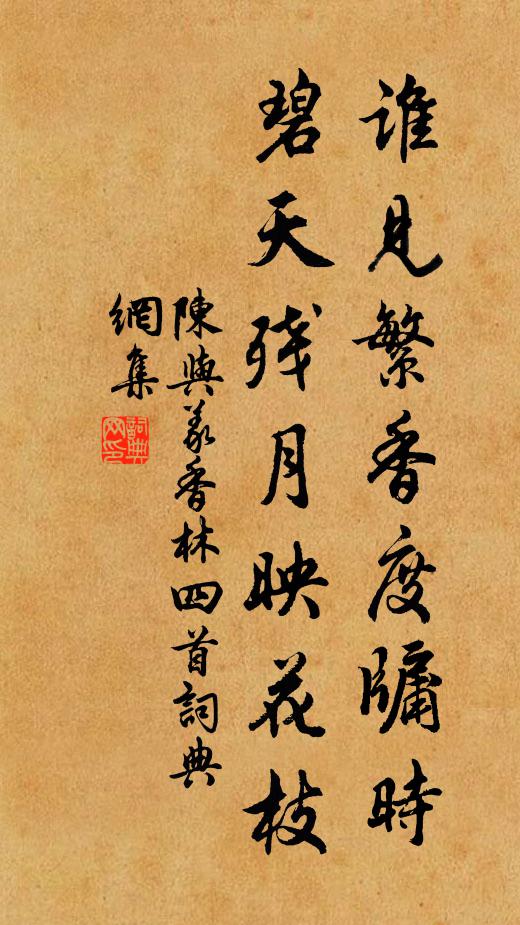 誰見繁香度牖時
碧天殘月映花枝
陳與義香林四首詞典
網集
詞典
网印